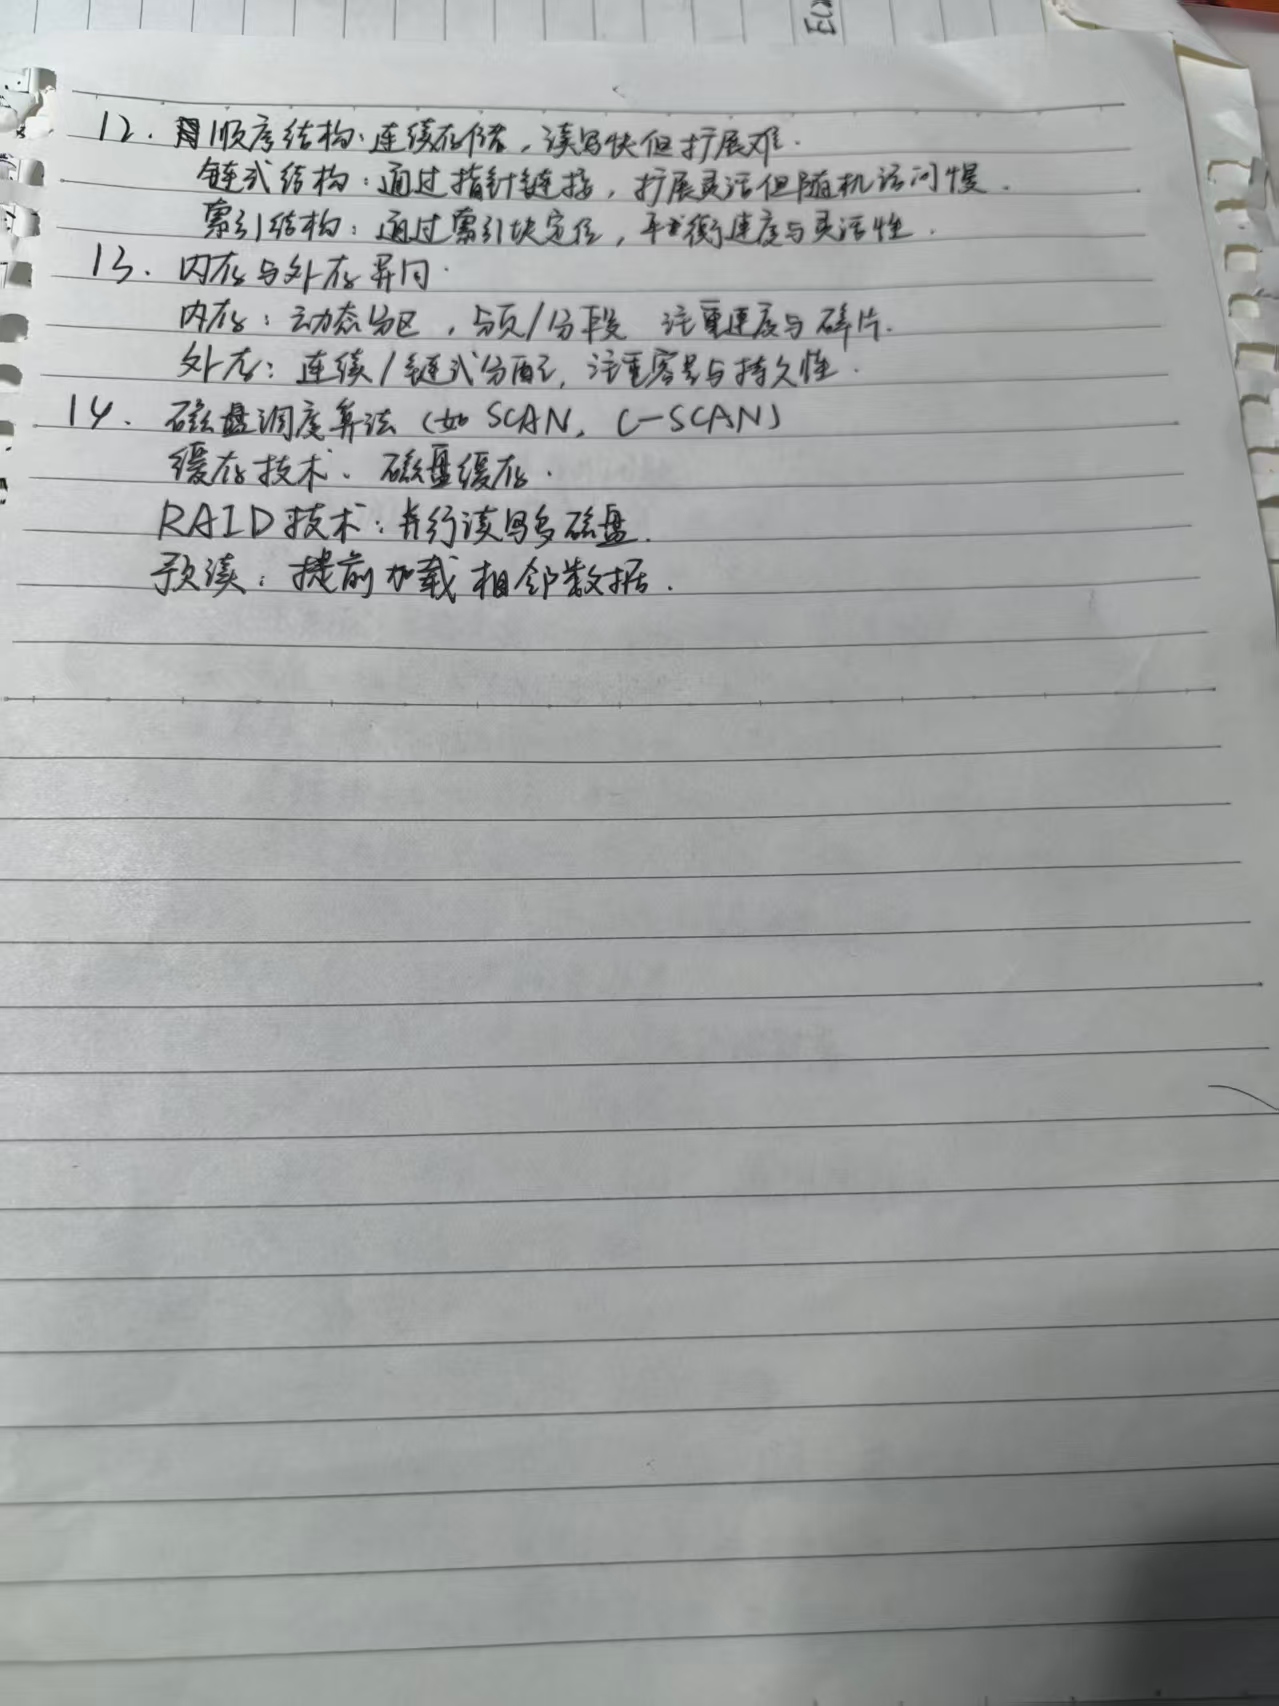 12. 顺序结构：连续存储，读写快但扩展难.
链式结构：通过指针链接，扩展灵活但随机访问慢.
索引结构：通过索引块定位，平衡速度与灵活性.
13. 内存与外存异同.
内存：动态分区，分页/分段 注重速度与碎片.
外存：连续/链式分配，注重容量与持久性.
14. 磁盘调度算法（如 SCAN，C-SCAN）
缓存技术、磁盘缓存.
RAID技术：并行读写多磁盘.
预读：提前加载相邻数据.